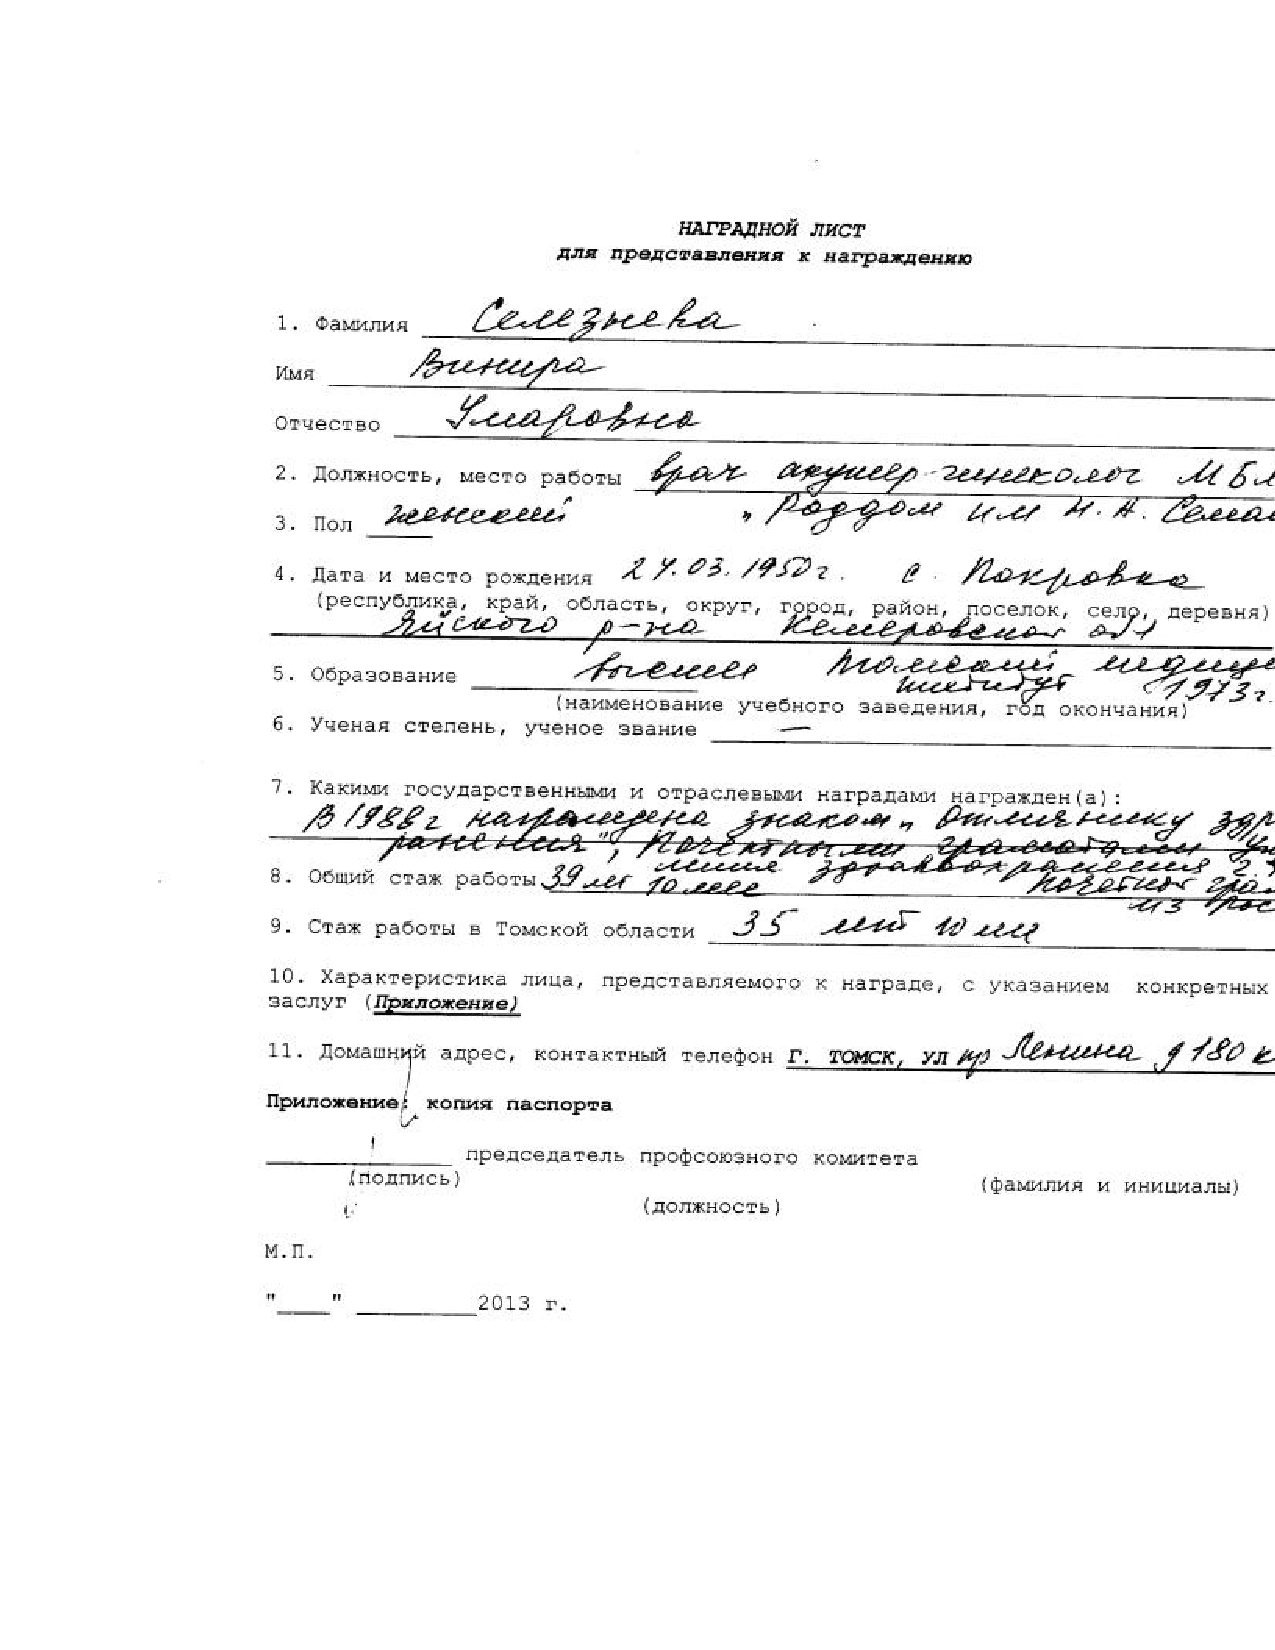 НАГРАДНОЙ ЛИСТ
для представления к награждению
1. Фамилия Селезнева
Имя Винира
Отчество Умаровна
2. Должность, место работы врач акушер-гинеколог МБЛ
3. Пол женский "Роддом им Н. А. Сема
4. Дата и место рождения 27.03.1950г. с. Покровка
(республика, край, область, округ, город, район, поселок, село, деревня)
Яйского р-на Кемеровской обл
5. Образование высшее Томский медици
институт 1973г.
(наименование учебного заведения, год окончания)
6. Ученая степень, ученое звание —
7. Какими государственными и отраслевыми наградами награжден(а):
В 1988г награждена знаком "Отличнику здр
ранения", Почётными грамотами
здравоохранения
8. Общий стаж работы 39 лет 10 мес Почетная гра
из Рос
9. Стаж работы в Томской области 35 лет 10 ме
10. Характеристика лица, представляемого к награде, с указанием конкретных
заслуг (Приложение)
11. Домашний адрес, контактный телефон Г. ТОМСК, УЛ пр Ленина д 180 к
Приложение: копия паспорта
председатель профсоюзного комитета
(подпись) (фамилия и инициалы)
(должность)
М.П.
"____" _________2013 г.